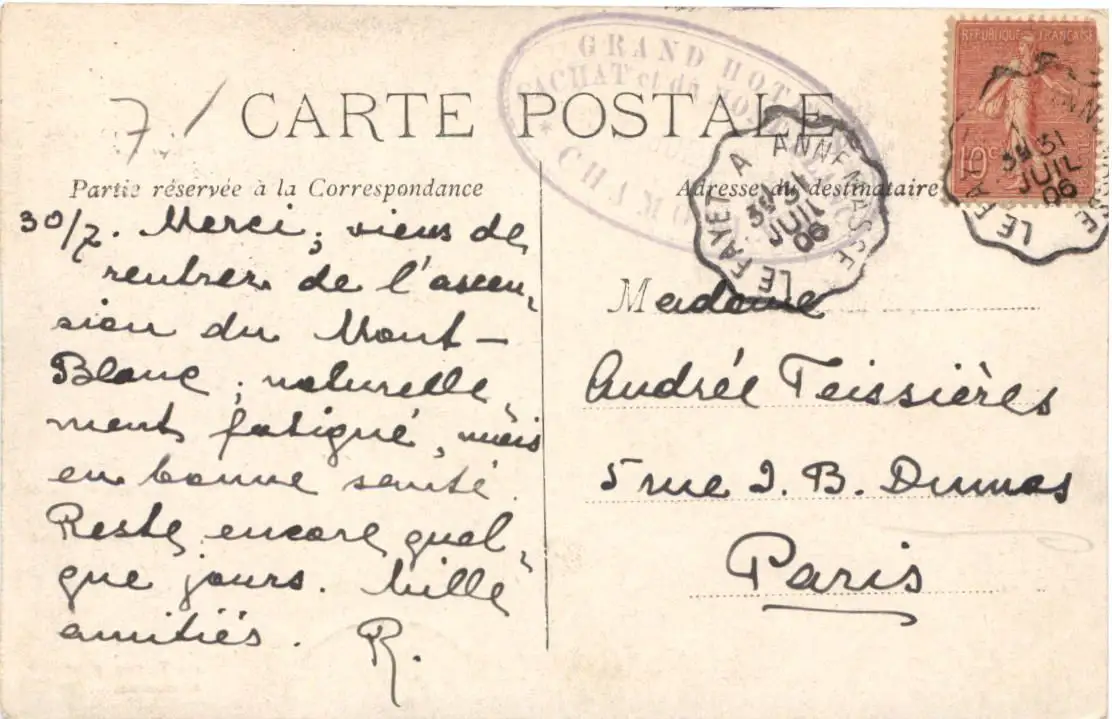 GRAND HOTEL
CACHAT et du MONT
CHAMO
7. /
CARTE POSTALE
RÉPUBLIQUE FRANÇAISE
10 c
LE FAYET A ANNEMASSE
31
JUIL
06
LE FAYET
31
JUIL
06
Partie réservée à la Correspondance
Adresse du destinataire
30/7. Merci; viens de
rentrer de l'ascen-
sion du Mont-
Blanc; naturelle-
ment fatigué, mais
en bonne santé.
Reste encore quel-
que jours. Mille
amitiés. R.
Madame
Andrée Teissières
5 rue J. B. Dumas
Paris